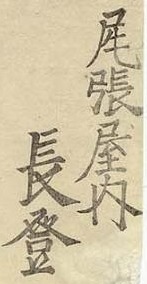 尾張屋内
長登